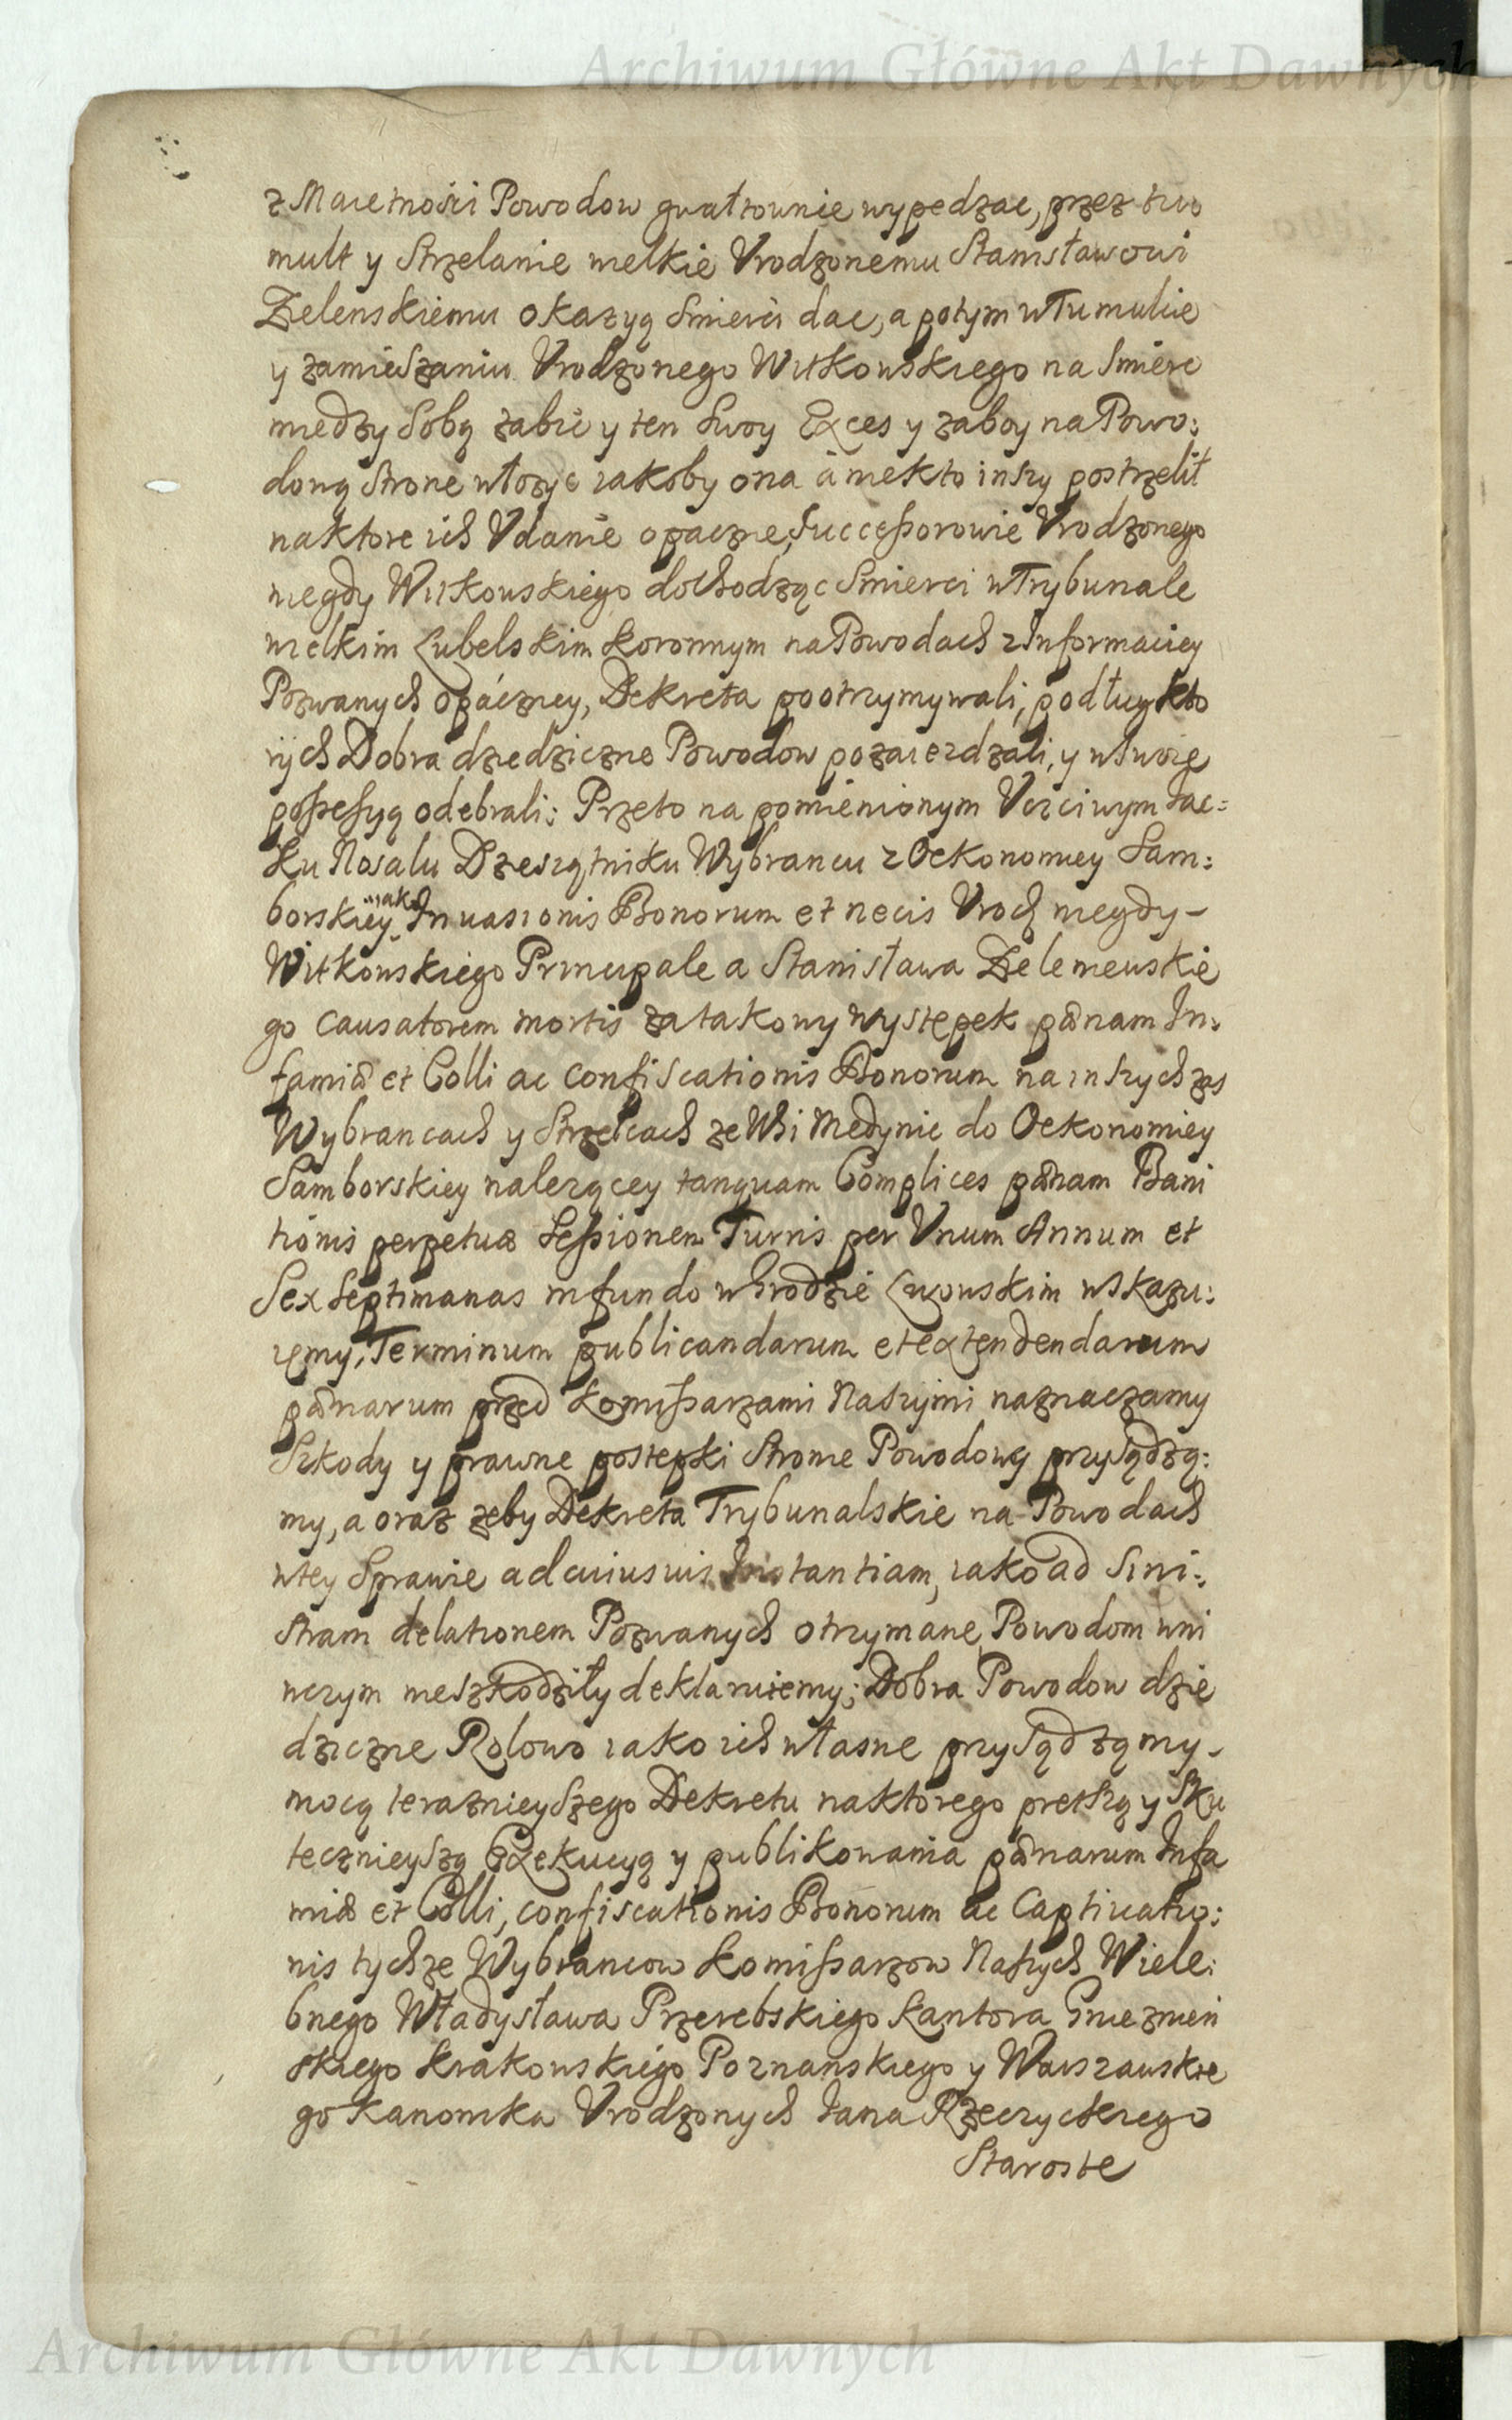 Archiwum Główne Akt Dawnych
z Maietnosci Powodow gwałtownie wypędzac, przez tu
mult y Strzelanie wielkie Vrodzonemu Stanisławowi
Zielenskiemu okazyą Smierci dac, a potym w Tumulcie
y zamieszaniu Vrodzonego Witkowskiego na Smierc
miedzy Sobą zabic y ten Swoy Exces y zaboy na Powo:
dową Strone włozyc iakoby ona a niekto inszy postrzelił
na ktore ich Vdanie opaczne, Successorowie Vrodzonego
niegdy Witkowskiego dochodząc Smierci w Trybunale
wielkim Lubelskim Koronnym na Powodach z Informaciey
Pozwanych opáczney, Dekreta pootrzymywali, podług kto
rych Dobra dziedziczne Powodow pozaiezdzali, y w Swoię
possessyą odebrali: Przeto na pomienionym Vczciwym Iac=
ku Nosalu Dziesiątniku Wybrancu z Oekonomiey Sam:
borskiey, iako Inuasionis Bonorum et necis Vrodz niegdy-
Witkowskiego Principale a Stanisława Zieleniewskie
go Causatorem mortis za takowy występek pænam In:
famiæ et Colli ac confiscationis Bonorum na inszych zas
Wybrancach y Strzelcach ze Wsi Medynic do Oekonomiey
Samborskiey nalezącey tanquam Complices pænam Bani
tionis perpetuæ Sessionem Turris per Vnum Annum et
Sex Septimanas in fundo w Grodzie Lwowskim wskazu:
iemy, Terminum publicandarum et extendendarum
pænarum przed Komissarzami Naszymi naznaczamy
Szkody y prawne postepki Stronie Powodowy przysądzą:
my, a oraz zeby Dekreta Trybunalskie na Powodach
w tey Sprawie ad cuiusuis Instantiam, iako ad Sini:
stram delationem Pozwanych otrzymane Powodom w ni
wczym nieszkodziły deklaruiemy; Dobra Powodow dzie
dziczne Rolowo iako ich własne przysądzamy-
mocą teraznieyszego Dekretu na ktorego pretszą y Sku
tecznieyszą Exekucyą y publikowania pænarum Infa
miæ et Colli, confiscationis Bonorum ac Captiuatio:
nis tychze Wybrancow Komissarzow Naszych Wiele:
bnego Władysława Przerebskiego Kantora Gnieznień
skiego Krakowskiego Poznanskiego y Warszawskie
go Kanonika Vrodzonych Iana Rzeczyckiego
Staroste
Archiwum Główne Akt Dawnych